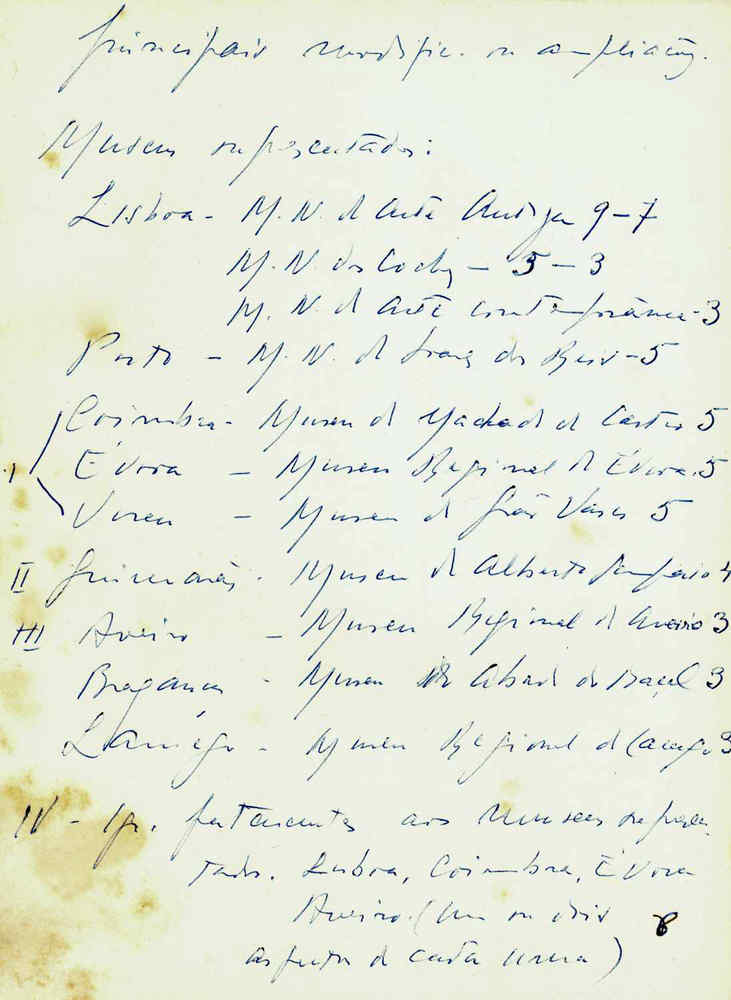 principais modific. ou ampliações.
Museus representados:
Lisboa - M. N. de Arte Antiga 9-7
M. N. dos Coches - 5 - 3
M. N. de Arte contemporânea - 3
Porto - M. N. de Soares dos Reis - 5
I Coimbra - Museu de Machado de Castro 5
Évora - Museu Regional de Évora. 5
Viseu - Museu de Grão Vasco 5
II Guimarães - Museu de Alberto Sampaio 4
III Aveiro - Museu Regional de Aveiro 3
Bragança - Museu do Abade de Baçal 3
Lamego - Museu Regional de Lamego 3
IV - Ig. pertencentes aos Museus represen
tados. Lisboa, Coimbra, Évora
Aveiro. (um ou dois 8
aspectos de cada uma)